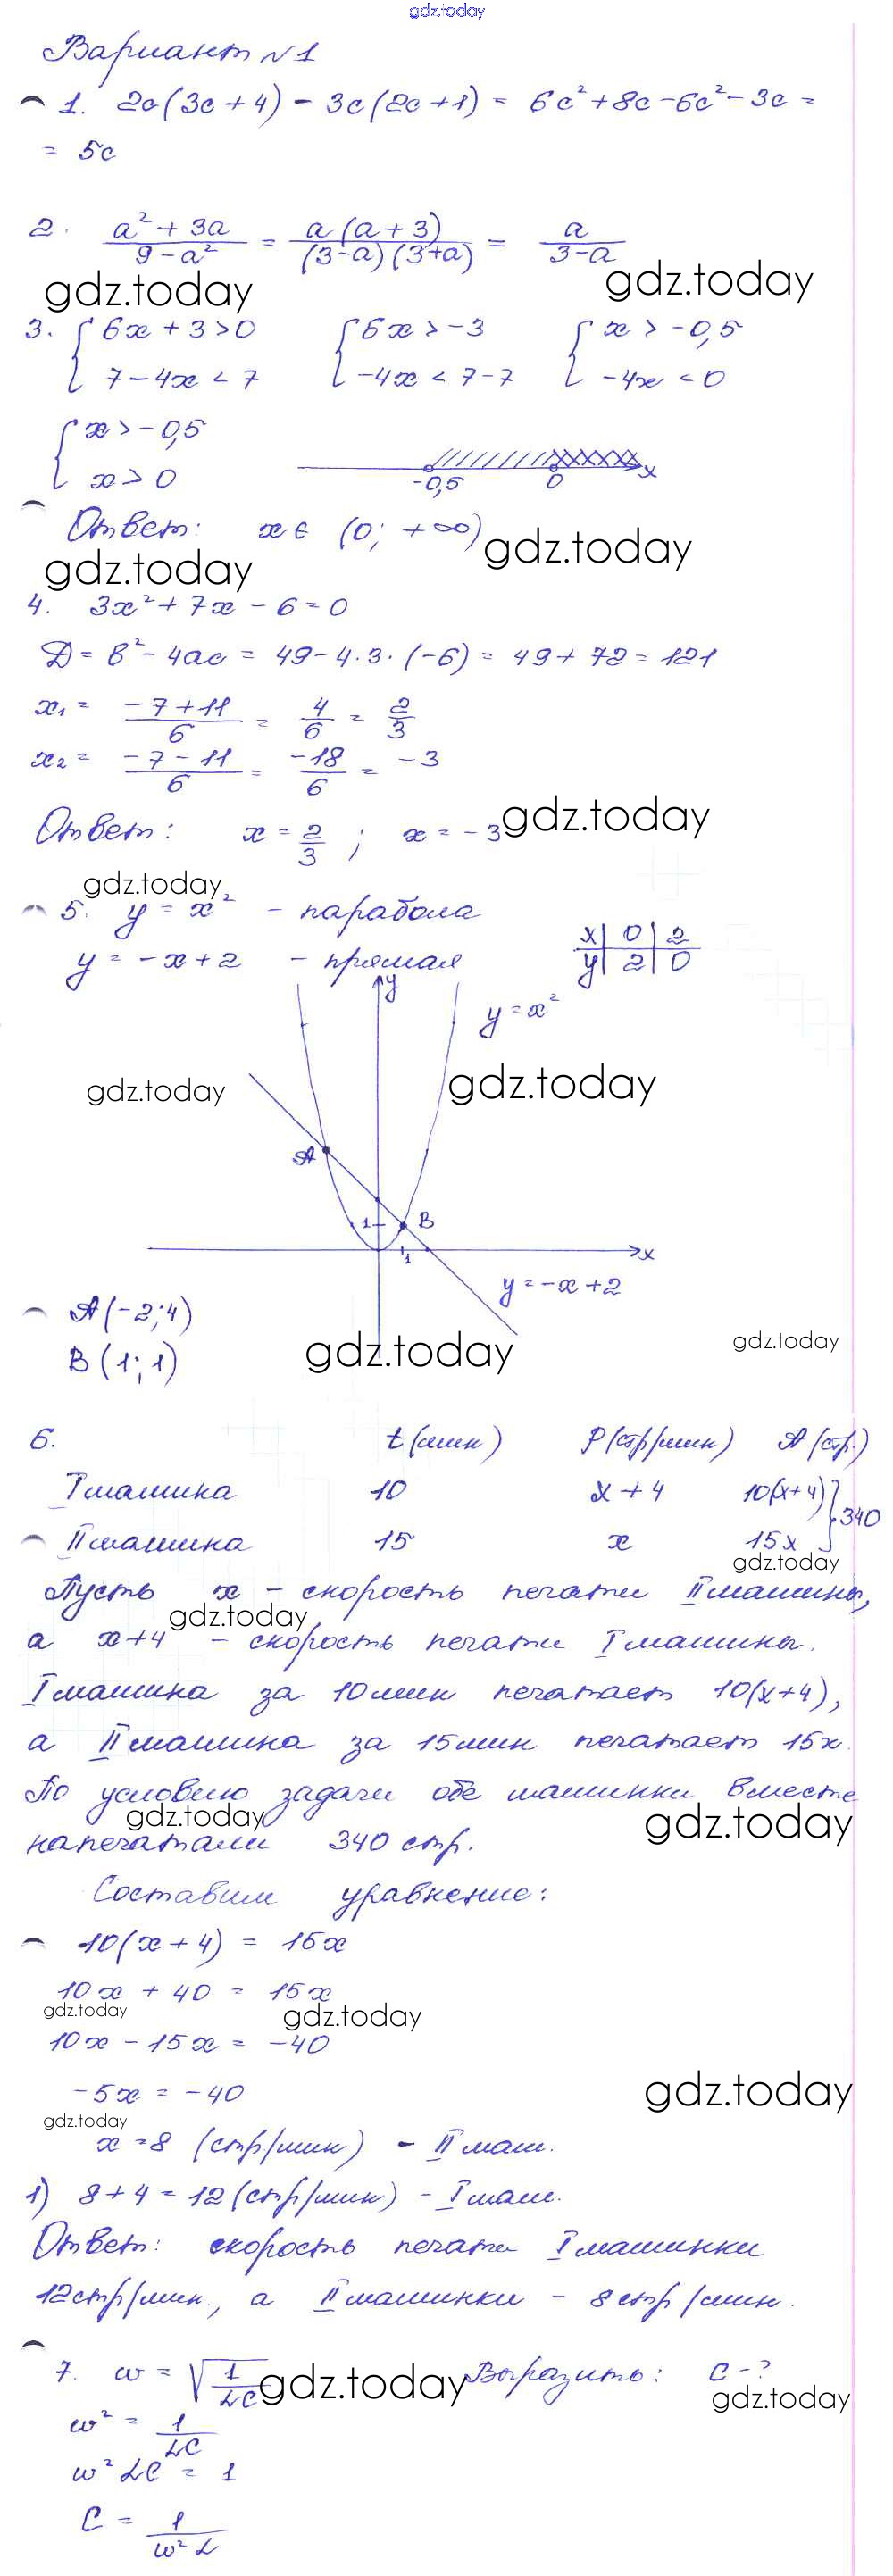 gdz.today
Вариант №1
1. 2c(3c+4) - 3c(2c+1) = 6c²+8c-6c²-3c =
= 5c
2. (a²+3a)/(9-a²) = (a(a+3))/((3-a)(3+a)) = a/(3-a)
gdz.today gdz.today
3. { 6x+3>0 { 6x>-3 { x>-0,5
7-4x<7 -4x<7-7 -4x<0
{ x>-0,5
x>0
-0,5 0 x
Ответ: x∈(0; +∞) gdz.today
gdz.today
4. 3x²+7x-6=0
D=b²-4ac = 49-4·3·(-6) = 49+72=121
x₁ = (-7+11)/6 = 4/6 = 2/3
x₂ = (-7-11)/6 = -18/6 = -3
Ответ: x = 2/3 ; x = -3 gdz.today
gdz.today
5. y = x² - парабола
y = -x+2 - прямая
x | 0 | 2
y | 2 | 0
y
y = x²
gdz.today gdz.today
A
1 B
1 x
y = -x+2
A(-2;4)
B(1;1)
gdz.today gdz.today
6. t(мин) P(стр/мин) A(стр.)
I машина 10 x+4 10(x+4) } 340
II машина 15 x 15x
gdz.today
Пусть x - скорость печати II машины,
gdz.today
а x+4 - скорость печати I машины.
I машина за 10 мин печатает 10(x+4),
а II машина за 15 мин печатает 15x.
По условию задачи обе машинки вместе
gdz.today gdz.today
напечатали 340 стр.
Составим уравнение:
10(x+4) = 15x
10x + 40 = 15x
gdz.today gdz.today
10x - 15x = -40
-5x = -40
gdz.today
gdz.today
x=8 (стр/мин) - II маш.
1) 8+4=12 (стр/мин) - I маш.
Ответ: скорость печати I машинки
12 стр/мин., а II машинки - 8 стр/мин.
7. w = √(1/LC) Выразить: C-?
gdz.today gdz.today
w² = 1/LC
w²LC = 1
C = 1/(w²L)